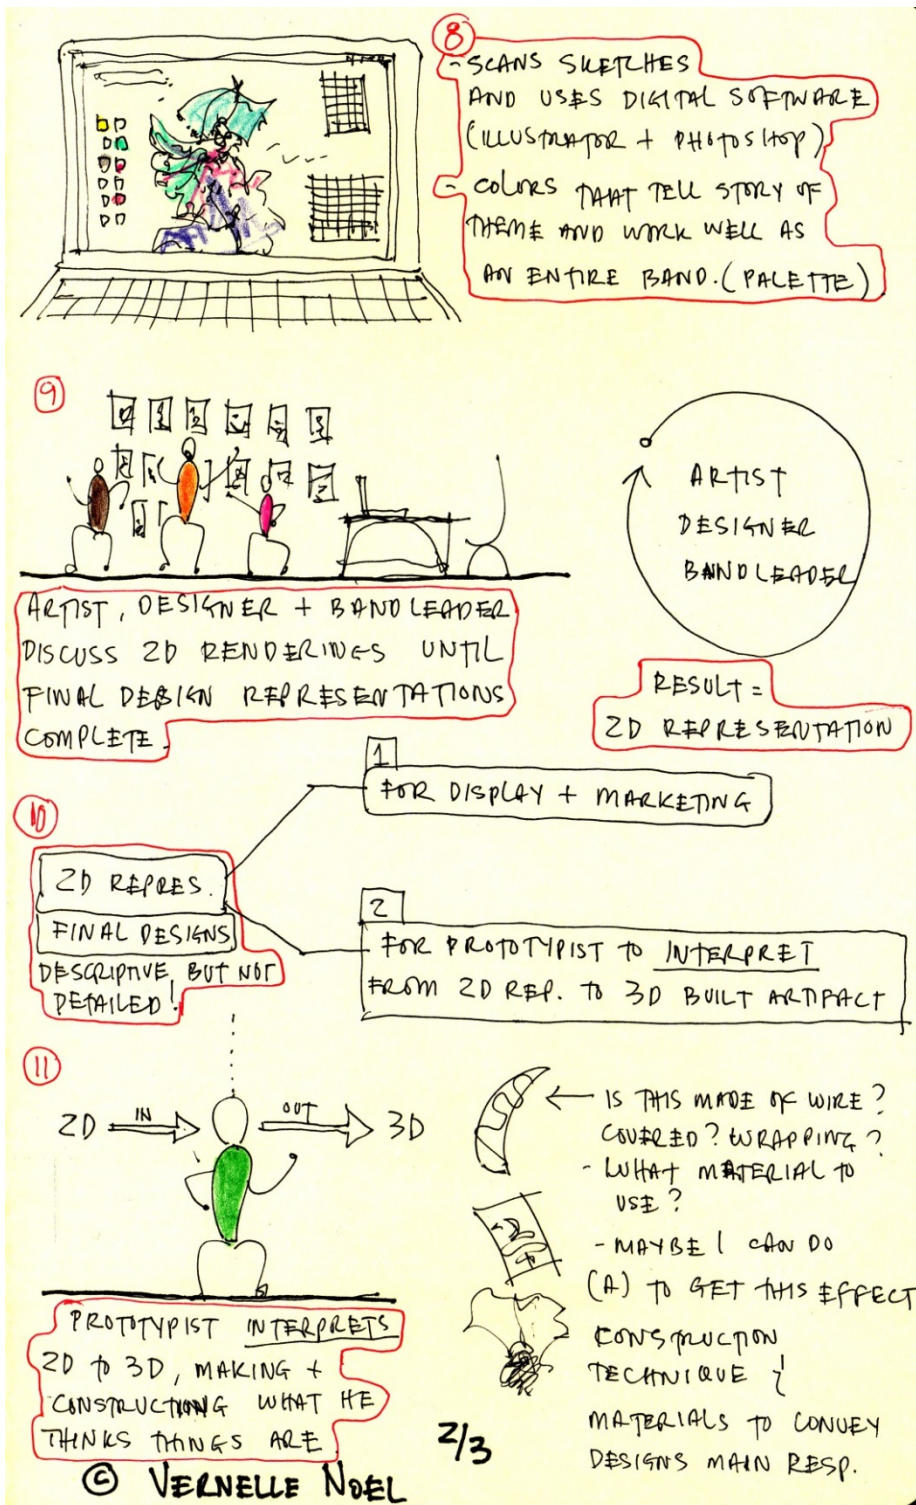 8
- SCANS SKETCHES
AND USES DIGITAL SOFTWARE
(ILLUSTRATOR + PHOTOSHOP)
- COLORS THAT TELL STORY OF
THEME AND WORK WELL AS
AN ENTIRE BAND. (PALETTE)
9
ARTIST, DESIGNER + BANDLEADER
DISCUSS 2D RENDERINGS UNTIL
FINAL DESIGN REPRESENTATIONS
COMPLETE.
ARTIST
DESIGNER
BANDLEADER
RESULT =
2D REPRESENTATION
10
2D REPRES.
FINAL DESIGNS
DESCRIPTIVE, BUT NOT
DETAILED!
1
FOR DISPLAY + MARKETING
2
FOR PROTOTYPIST TO INTERPRET
FROM 2D REP. TO 3D BUILT ARTIFACT
11
2D IN OUT 3D
PROTOTYPIST INTERPRETS
2D TO 3D, MAKING +
CONSTRUCTING WHAT HE
THINKS THINGS ARE
IS THIS MADE OF WIRE?
COVERED? WRAPPING?
- WHAT MATERIAL TO
USE?
- MAYBE I CAN DO
(A) TO GET THIS EFFECT
CONSTRUCTION
TECHNIQUE &
MATERIALS TO CONVEY
DESIGNS MAIN RESP.
2/3
© VERNELLE NOEL